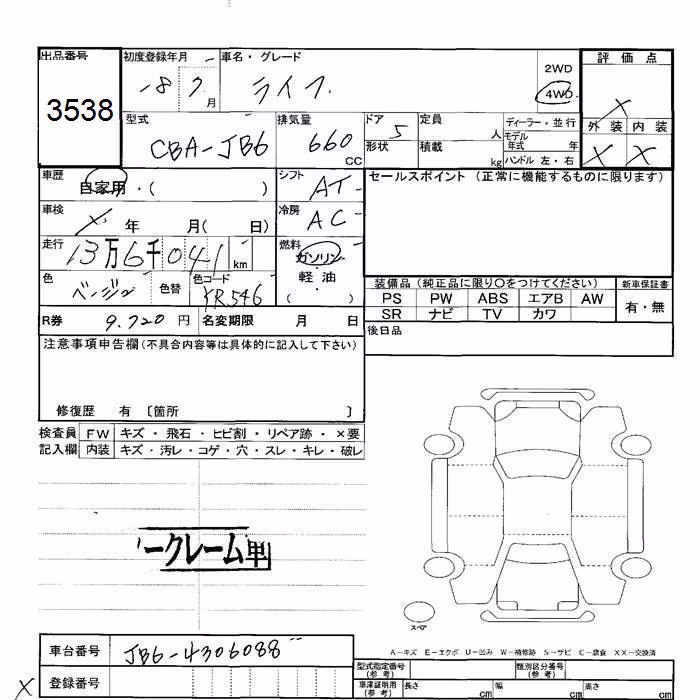 出品番号 初度登録年月 車名・グレード 2WD 評価点
3538 18 7 月 ライフ 4WD X
型式 排気量 ドア 定員 人 ディーラー・並行 外装 内装
CBA-JB6 660 CC 5 形状 積載 kg モデル年式 年 X X
ハンドル 左・右
車歴 自家用・( ) シフト AT セールスポイント (正常に機能するものに限ります)
車検 X 年 月( 日) 冷房 AC
走行 13万6千041 km 燃料 ガソリン
色 ベージュ 色替 色コード YR546 軽・油 ( )
装備品 (純正品に限り○をつけてください) 新車保証書
PS PW ABS エアB AW 有・無
SR ナビ TV カワ
R券 9.720 円 名変期限 月 日 後日品
注意事項申告欄(不具合内容等は具体的に記入して下さい)
修復歴 有 〔箇所 〕
検査員 FW キズ・飛石・ヒビ割・リペア跡・×要
記入欄 内装 キズ・汚レ・コゲ・穴・スレ・キレ・破レ
ークレーム車
スペア
A-キズ E-エクボ U-凹み W-補修跡 S-サビ C-腐食 XX-交換済
車台番号 JB6-4306088
X 登録番号
型式指定番号 (参考) 類別区分番号 (参考)
車庫証明用 (参考) 長さ cm 幅 cm 高さ cm